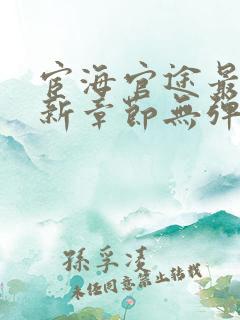 宦海官途最
新章節無彈
孫孚凌
未经同意禁止转载